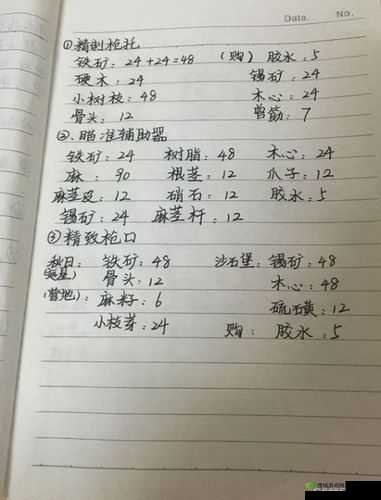 Data. No.
①精制枪托
铁矿：24+24=48 （购）胶水：5
硬木：24 锡矿：24
小树枝：48 木心：24
骨头：12 兽筋：7
②瞄准辅助器
铁矿：24 树脂：48 木心：24
麻：90 根茎：12 爪子：12
麻茎皮：12 硝石：12 胶水：5
锡矿：24 麻茎杆：12
③精致枪口
秋日： 铁矿：48 沙石堡：锡矿：48
骨头：12 木心：48
（营地）：麻籽：6 硫磺：12
小枝芽：24 购：胶水：5